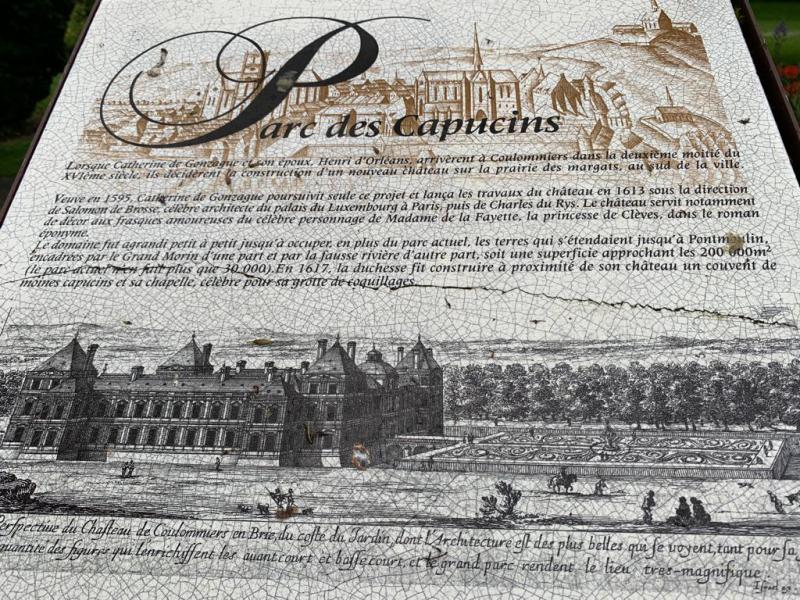 Parc des Capucins
Lorsque Catherine de Gonzague et son époux, Henri d'Orléans, arrivèrent à Coulommiers dans la deuxième moitié du
XVIème siècle, ils décidèrent la construction d'un nouveau château sur la prairie des margats, au sud de la ville.
Veuve en 1595, Catherine de Gonzague poursuivit seule ce projet et lança les travaux du château en 1613 sous la direction
de Salomon de Brosse, célèbre architecte du palais du Luxembourg à Paris, puis de Charles du Rys. Le château servit notamment
de décor aux frasques amoureuses du célèbre personnage de Madame de la Fayette, la princesse de Clèves, dans le roman
éponyme.
Le domaine fut agrandi petit à petit jusqu'à occuper, en plus du parc actuel, les terres qui s'étendaient jusqu'à Pontmoulin,
encadrées par le Grand Morin d'une part et par la fausse rivière d'autre part, soit une superficie approchant les 200 000m²
(le parc actuel n'en fait plus que 30 000). En 1617, la duchesse fit construire à proximité de son château un couvent de
moines capucins et sa chapelle, célèbre pour sa grotte de coquillages.
Perspective du Chasteau de Coulommiers en Brie, du costé du Jardin, dont L'Architecture est des plus belles qui se voyent, tant pour sa
quantité des figures qui l'enrichissent les avantcourt et bassecourt, et le grand parc rendent le lieu tres-magnifique.